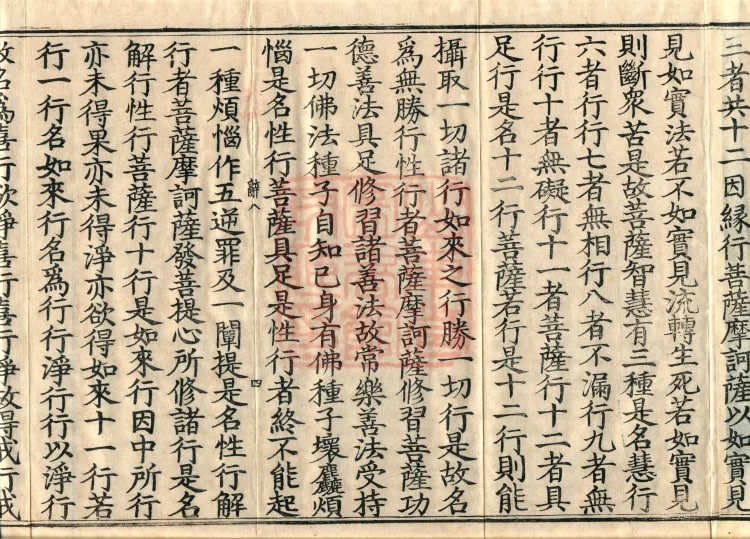 三者共十二因緣行菩薩摩訶薩以如實見
見如實法若不如實見流轉生死若如實見
則斷衆苦是故菩薩智慧有三種是名慧行
六者行行七者無相行八者不漏行九者無
行行十者無礙行十一者菩薩行十二者具
足行是名十二行菩薩若行是十二行則能
攝取一切諸行如來之行勝一切行是故名
爲無勝行性行者菩薩摩訶薩修習菩薩功
德善法具足修習諸善法故常樂善法受持
一切佛法種子自知己身有佛種子壞麤煩
惱是名性行菩薩具足是性行者終不能起
辭八 四
一種煩惱作五逆罪及一闡提是名性行解
行者菩薩摩訶薩發菩提心所修諸行是名
解行性行菩薩行十行是如來行因中所行
亦未得果亦未得淨亦欲得如來十一行若
行一行名如來行名爲行行淨行行以淨行
故名爲喜行欲淨喜行喜行淨故得戒行戒